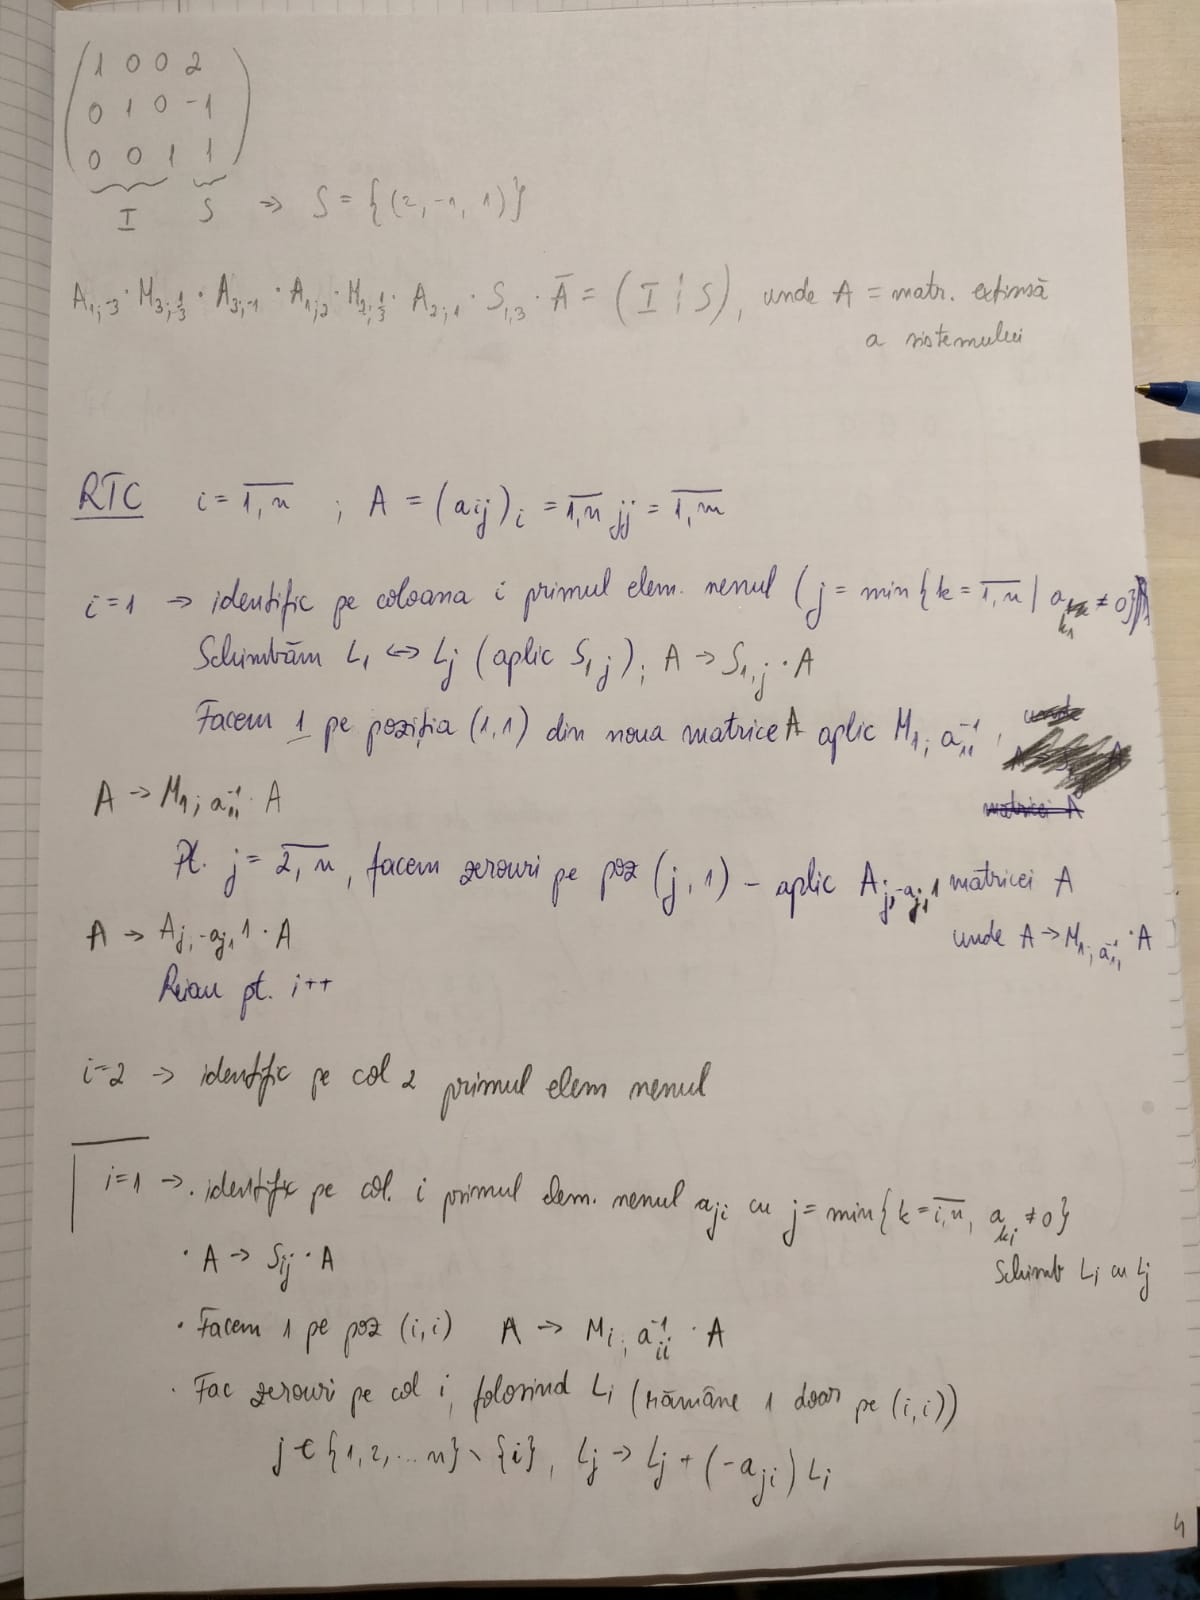 1 0 0 2
0 1 0 -1
0 0 1 1
I S => S = {(2, -1, 1)}
A₁;₋₃ · M₃;⅓ · A₃;₋₁ · A₁;₂ · M₂;⅓ · A₂;₁ · S₁,₃ · Ā = (I ¦ S), unde A = matr. extinsă
a sistemului
RTC i = 1,n ; A = (aij) i = 1,n jj = 1,m
i=1 → identific pe coloana i primul elem. nenul (j = min{k = 1,n | a k1 ≠ 0})
Schimbăm L₁ ↔ Lj (aplic S₁,j); A → S₁,j · A
Facem 1 pe poziția (1,1) din noua matrice A aplic M₁; a₁₁⁻¹,
A → M₁; a₁₁⁻¹ · A
matricei A
Pt. j = 2,n, facem zerouri pe poz (j,1) - aplic Aj,-aj,1 1 matricei A
A → Aj,-aj,1 1 · A
unde A → M₁; a₁₁⁻¹ · A
Reiau pt. i++
i=2 → identific pe col 2 primul elem nenul
i=1 → · identific pe col. i primul elem. nenul aji cu j = min{k = i,n, a ki ≠ 0}
Schimb Li cu Lj
· A → Sij · A
· Facem 1 pe poz (i,i) A → Mi; aii⁻¹ · A
· Fac zerouri pe col i, folosind Li (rămâne 1 doar pe (i,i))
j ∈ {1,2,...n} \ {i}, Lj → Lj + (-aji) Li
4